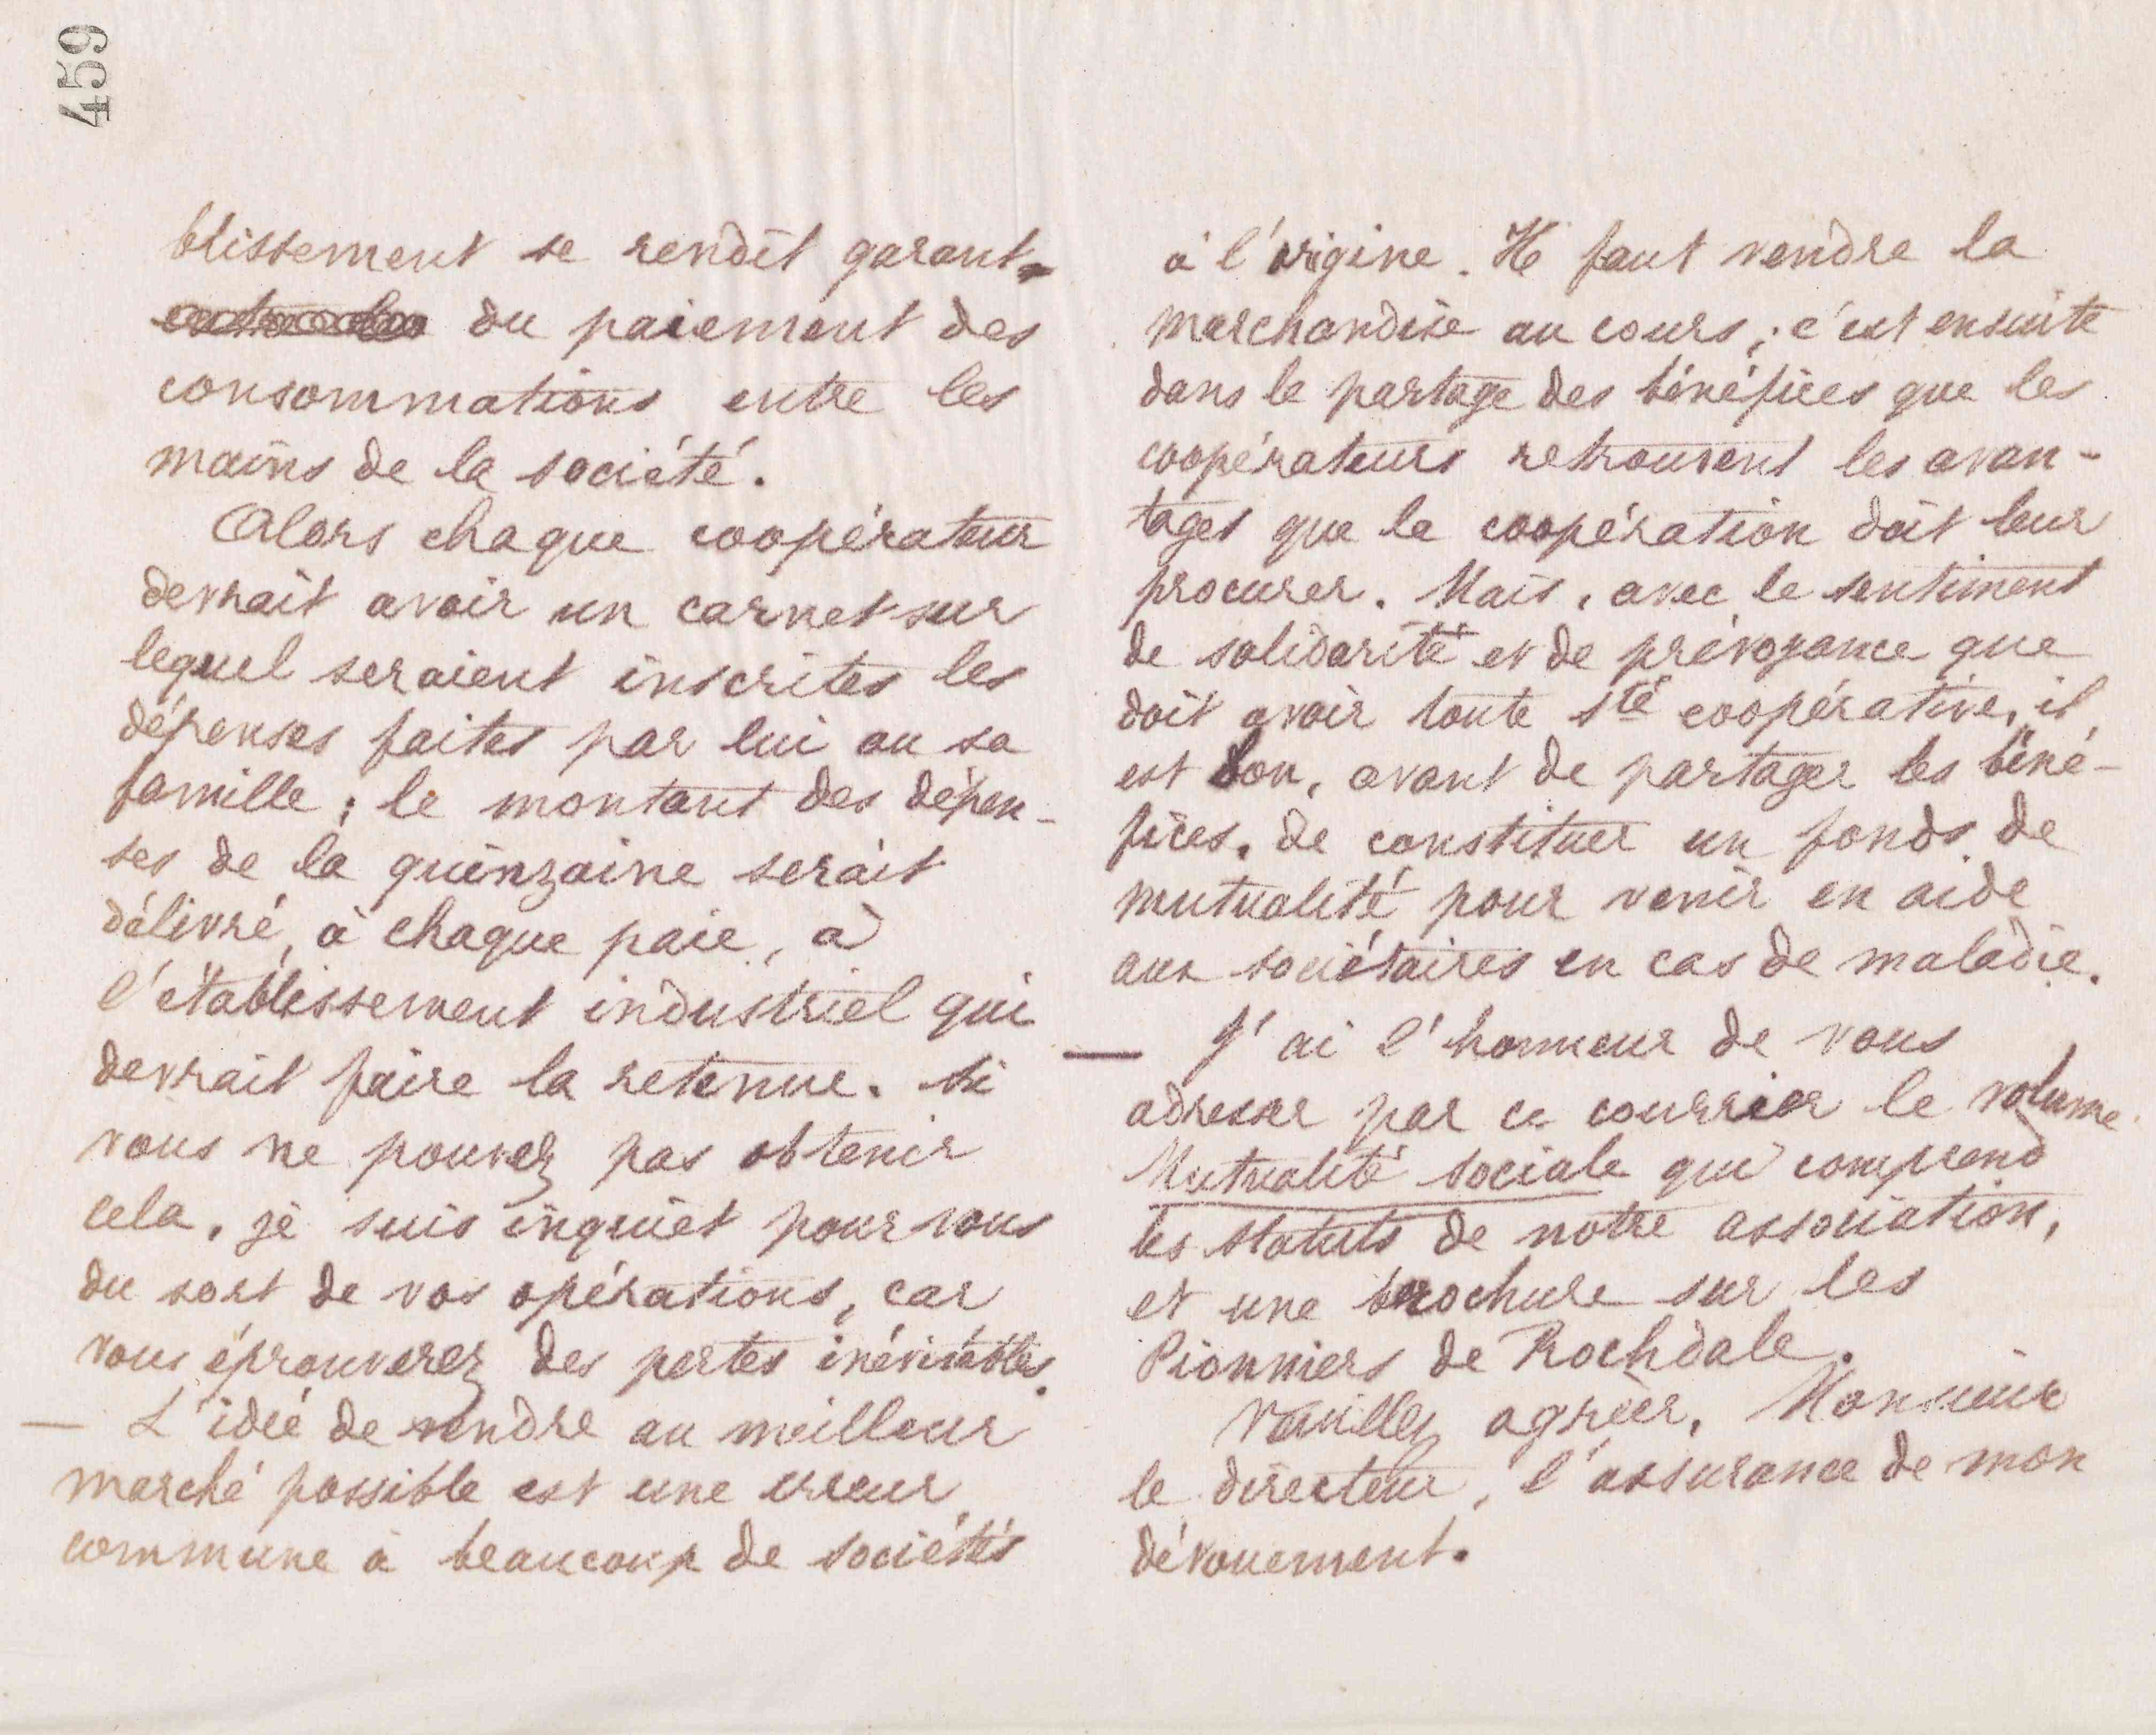 459
blissement se rendît garant
du paiement des
consommations entre les
mains de la société.
Alors chaque coopérateur
devrait avoir un carnet sur
lequel seraient inscrites les
dépenses faites par lui ou sa
famille ; le montant des dépen-
ses de la quinzaine serait
délivré, à chaque paie, à
l'établissement industriel qui
devrait faire la retenue. Si
vous ne pouvez pas obtenir
cela, je suis inquiet pour vous
du sort de vos opérations, car
vous éprouverez des pertes inévitables.
— L'idée de vendre au meilleur
marché possible est une erreur
commune à beaucoup de sociétés
à l'origine. Il faut vendre la
marchandise au cours ; c'est ensuite
dans le partage des bénéfices que les
coopérateurs retrouvent les avan-
tages que la coopération doit leur
procurer. Mais, avec le sentiment
de solidarité et de prévoyance que
doit avoir toute Sté coopérative, il
est bon, avant de partager les béné-
fices, de constituer un fonds de
mutualité pour venir en aide
aux sociétaires en cas de maladie.
— J'ai l'honneur de vous
adresser par ce courrier le volume
Mutualité sociale qui comprend
les statuts de notre association,
et une brochure sur les
Pionniers de Rochdale.
Veuillez agréer, Monsieur
le directeur, l'assurance de mon
dévouement.